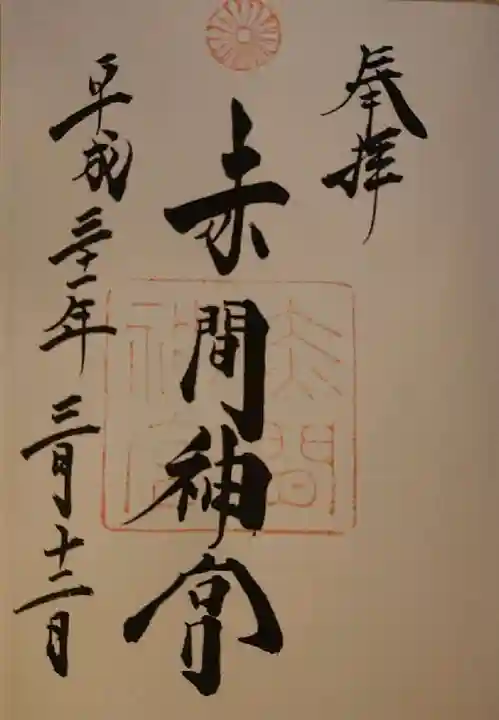 奉拝
赤間神宮
赤間
神宮
平成三十一年三月十二日